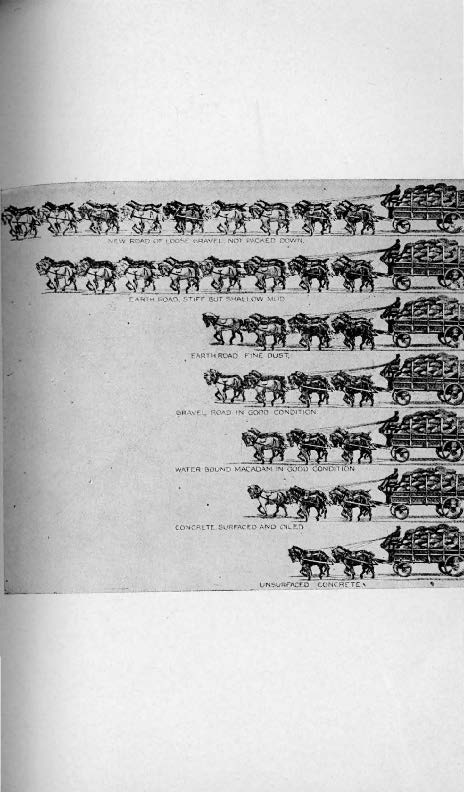 NEW ROAD OF LOOSE GRAVEL NOT PACKED DOWN.
EARTH ROAD, STIFF BUT SHALLOW MUD
EARTH ROAD FINE DUST.
GRAVEL ROAD IN GOOD CONDITION
WATER BOUND MACADAM IN GOOD CONDITION
CONCRETE SURFACED AND OILED
UNSURFACED CONCRETE